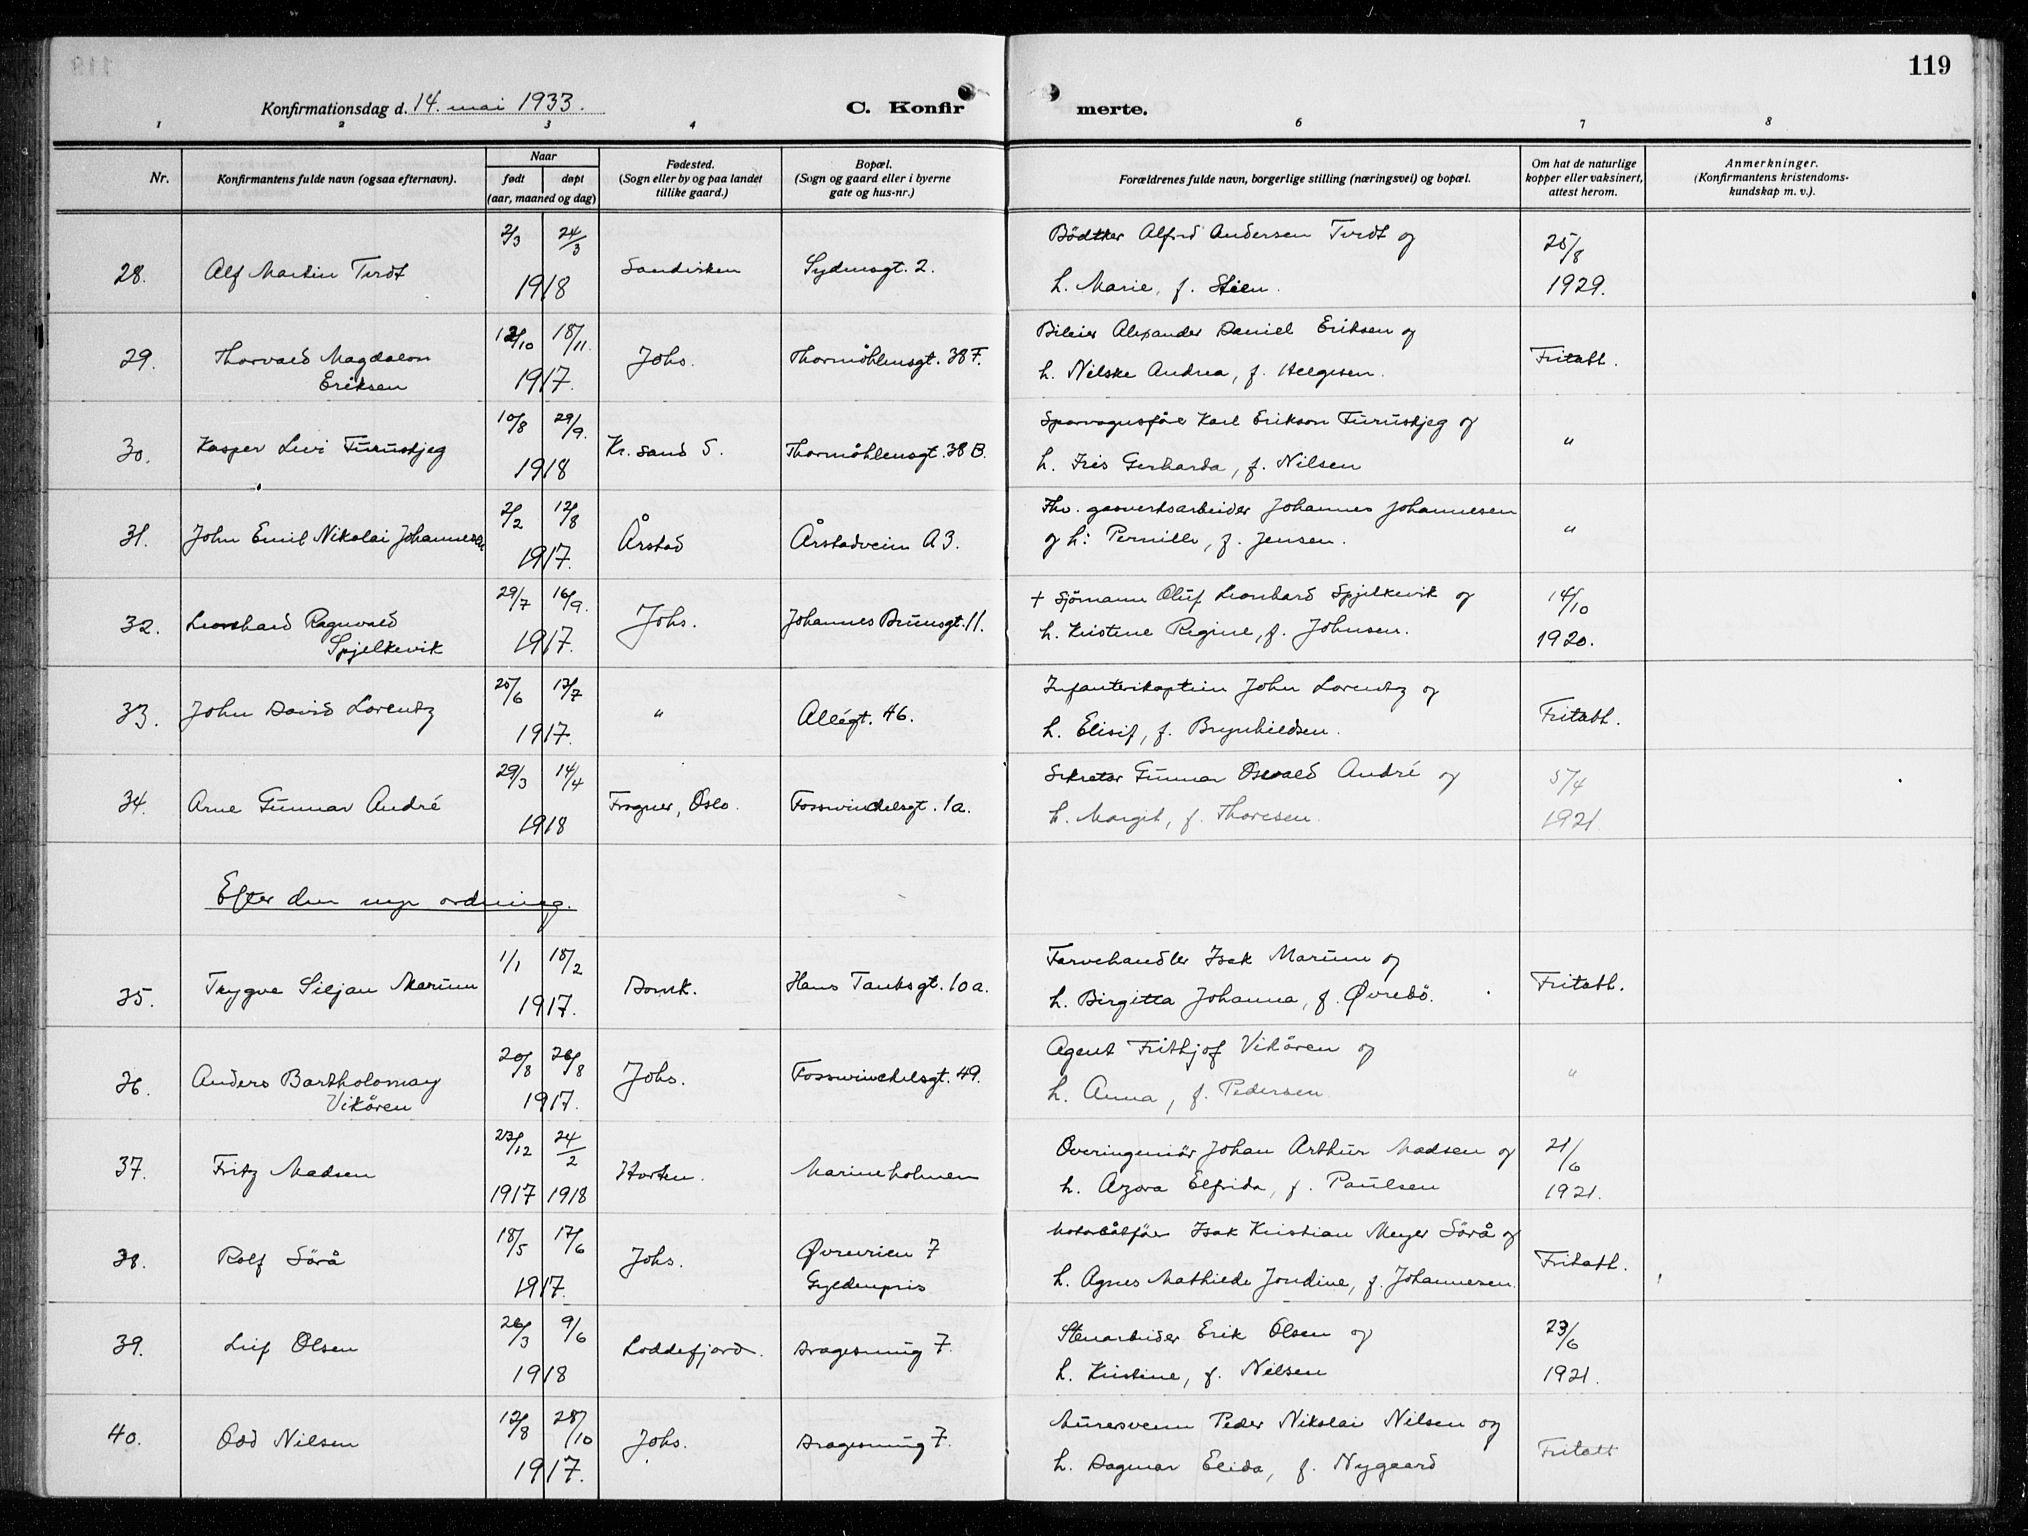 119
Konfirmationsdag d. 14. mai 1933.
C. Konfir merte.
1 2 3 4 6 7 8
Nr.
Konfirmantens fulde navn (ogsaa efternavn).
Naar
født døpt
(aar, maaned og dag)
Fødested.
(Sogn eller by og paa landet
tillike gaard.)
Bopæl.
(Sogn og gaard eller i byerne
gate og hus-nr.)
Forældrenes fulde navn, borgerlige stilling (næringsvei) og bopæl.
Om hat de naturlige
kopper eller vaksinert,
attest herom.
Anmerkninger.
(Konfirmantens kristendoms-
kundskap m. v.).
28. Alf Martin Tvedt 2/3 24/3 1918 Sandviken Sydnesgt. 2.
Bödtker Alfred Andersen Tvedt og
h. Marie, f. Steen.
25/8
1929.
29. Thorvald Magdalon
Eriksen
12/10 18/11. 1917. Johs. Thormöhlensgt. 38 F.
Bileier Alexander Daniel Eriksen og
h. Nilske Andrea, f. Helgesen.
Fritatt.
30. Kasper Levi Furuskjeg 10/8 29/9. 1918 Kr.sand S. Thormöhlensgt. 38 B.
Sporvognsfører Karl Erikson Furuskjeg og
h. Iris Gerharda, f. Nilsen
"
31. John Emil Nikolai Johannesen 2/2 12/8 1917. Årstad Årstadveien A 3.
Fhv. gasverksarbeider Johannes Johannesen
og h: Pernille, f. Jensen.
"
32. Leonhard Ragnvald
Spjelkevik
29/7 16/9. 1917. Johs. Johannes Brunsgt. 11.
+ Sjömann Oluf Leonhard Spjelkevik og
h. Kristine Regine, f. Johnsen.
14/10
1920.
33. John David Lorentz 25/6 17/7 1917. " Allégt. 46.
Infanterikaptein John Lorentz og
h. Elisif, f. Brynhildsen.
Fritatt.
34. Arne Gunnar André 29/3 14/4 1918 Frogner, Oslo. Fosswinckelsgt. 1a.
Sekretær Gunnar Oswald André og
h. Margit, f. Thoresen.
5/4
1921
Efter den nye ordning.
35. Trygve Siljan Marum 1/1 18/2 1917. Domk. Hans Tanksgt. 10a.
Farvehandler Isak Marum og
h. Birgitta Johanna, f. Øvrebö.
Fritatt.
36. Anders Bartholomay
Vikören
20/8 26/8 1917. Johs. Fosswinckelsgt. 49.
Agent Frithjof Vikören og
h. Anna, f. Pedersen
"
37. Fritz Madsen 23/12 24/2 1917 1918 Horten. Marineholmen
Overingeniör Johan Arthur Madsen og
h. Azora Elfrida, f. Paulsen
21/6
1921.
38. Rolf Sörå 18/5 17/6 1917. Johs. Øvreveien 7
Gyldenpris
Motorbåtfører Isak Kristian Meyer Sörå og
h. Agnes Mathilde Jondine, f. Johannesen.
Fritatt.
39. Leif Olsen 26/3 9/6 1918 Loddefjord. Dragesmug 7.
Stenarbeider Erik Olsen og
h. Kristine, f. Nilsen
23/6
1921.
40. Odd Nilsen 12/8 28/10 1917. Johs. Dragesmug 7.
Murersvenn Peder Nikolai Nilsen og
h. Dagmar Elida, f. Nygaard
Fritatt